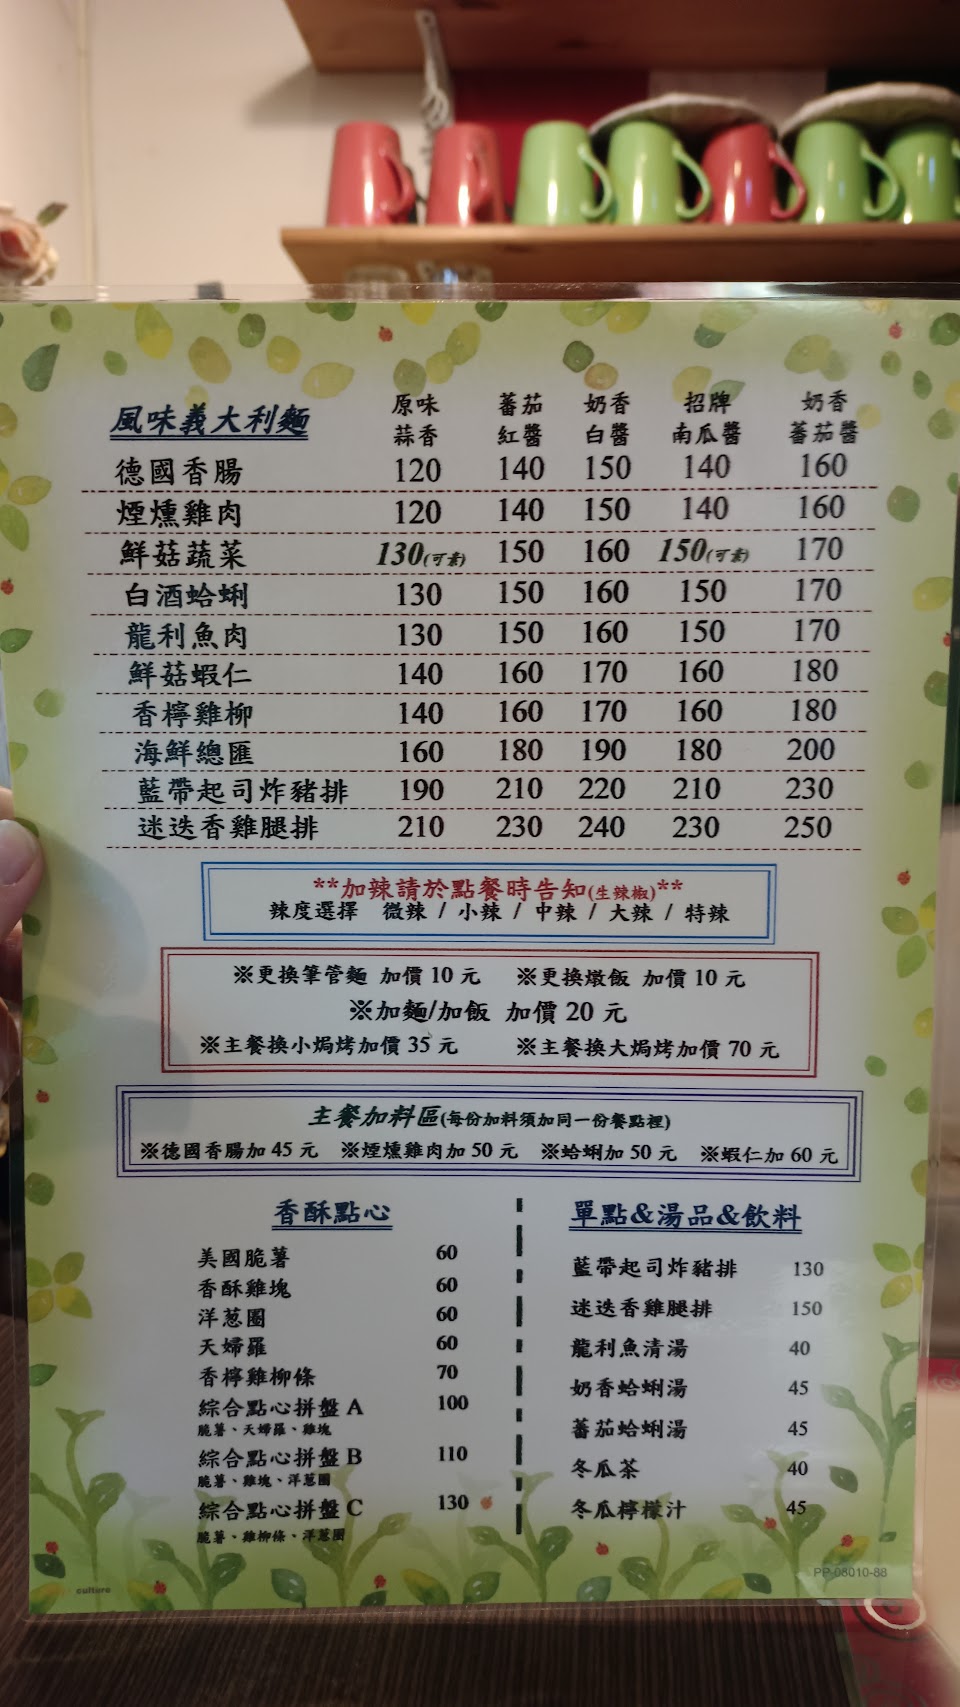 風味義大利麵 原味蒜香 蕃茄紅醬 奶香白醬 招牌南瓜醬 奶香蕃茄醬
德國香腸 120 140 150 140 160
煙燻雞肉 120 140 150 140 160
鮮菇蔬菜 130(可素) 150 160 150(可素) 170
白酒蛤蜊 130 150 160 150 170
龍利魚肉 130 150 160 150 170
鮮菇蝦仁 140 160 170 160 180
香檸雞柳 140 160 170 160 180
海鮮總匯 160 180 190 180 200
藍帶起司炸豬排 190 210 220 210 230
迷迭香雞腿排 210 230 240 230 250
**加辣請於點餐時告知(生辣椒)**
辣度選擇 微辣 / 小辣 / 中辣 / 大辣 / 特辣
※更換筆管麵 加價 10 元 ※更換燉飯 加價 10 元
※加麵/加飯 加價 20 元
※主餐換小焗烤加價 35 元 ※主餐換大焗烤加價 70 元
主餐加料區(每份加料須加同一份餐點裡)
※德國香腸加 45 元 ※煙燻雞肉加 50 元 ※蛤蜊加 50 元 ※蝦仁加 60 元
香酥點心
美國脆薯 60
香酥雞塊 60
洋蔥圈 60
天婦羅 60
香檸雞柳條 70
綜合點心拼盤 A 100
脆薯、天婦羅、雞塊
綜合點心拼盤 B 110
脆薯、雞塊、洋蔥圈
綜合點心拼盤 C 130
脆薯、雞柳條、洋蔥圈
單點&湯品&飲料
藍帶起司炸豬排 130
迷迭香雞腿排 150
龍利魚清湯 40
奶香蛤蜊湯 45
蕃茄蛤蜊湯 45
冬瓜茶 40
冬瓜檸檬汁 45
culture
PP-08010-88